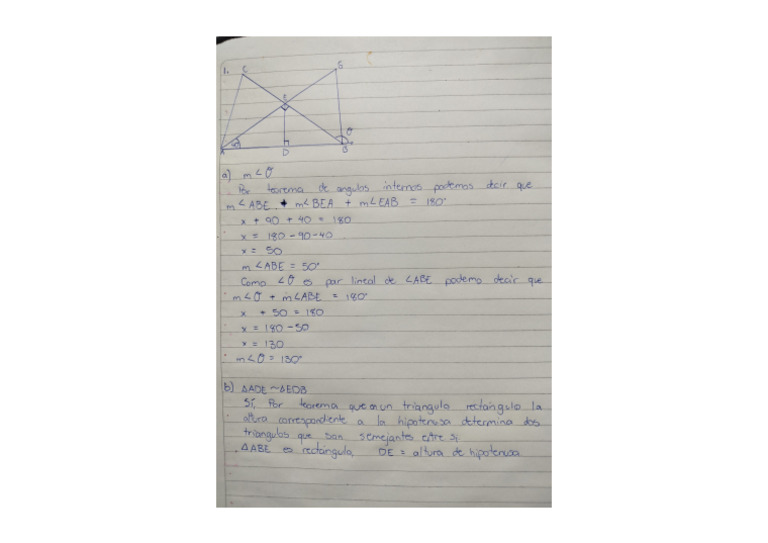 1.
C
G
E
40
θ
A
D
B
a) m∠θ
Por teorema de angulos internos podemos decir que
m∠ABE + m∠BEA + m∠EAB = 180°
x + 90 + 40 = 180
x = 180 - 90 - 40
x = 50
m∠ABE = 50°
Como ∠θ es par lineal de ∠ABE podemo decir que
m∠θ + m∠ABE = 180°
x + 50 = 180
x = 180 - 50
x = 130
m∠θ = 130°
b) ΔADE ~ ΔEDB
Sí, Por teorema que en un triangulo rectángulo la
altura correspondiente a la hipotenusa determina dos
triangulos que son semejantes entre si.
ΔABE es rectángulo, DE = altura de hipotenusa